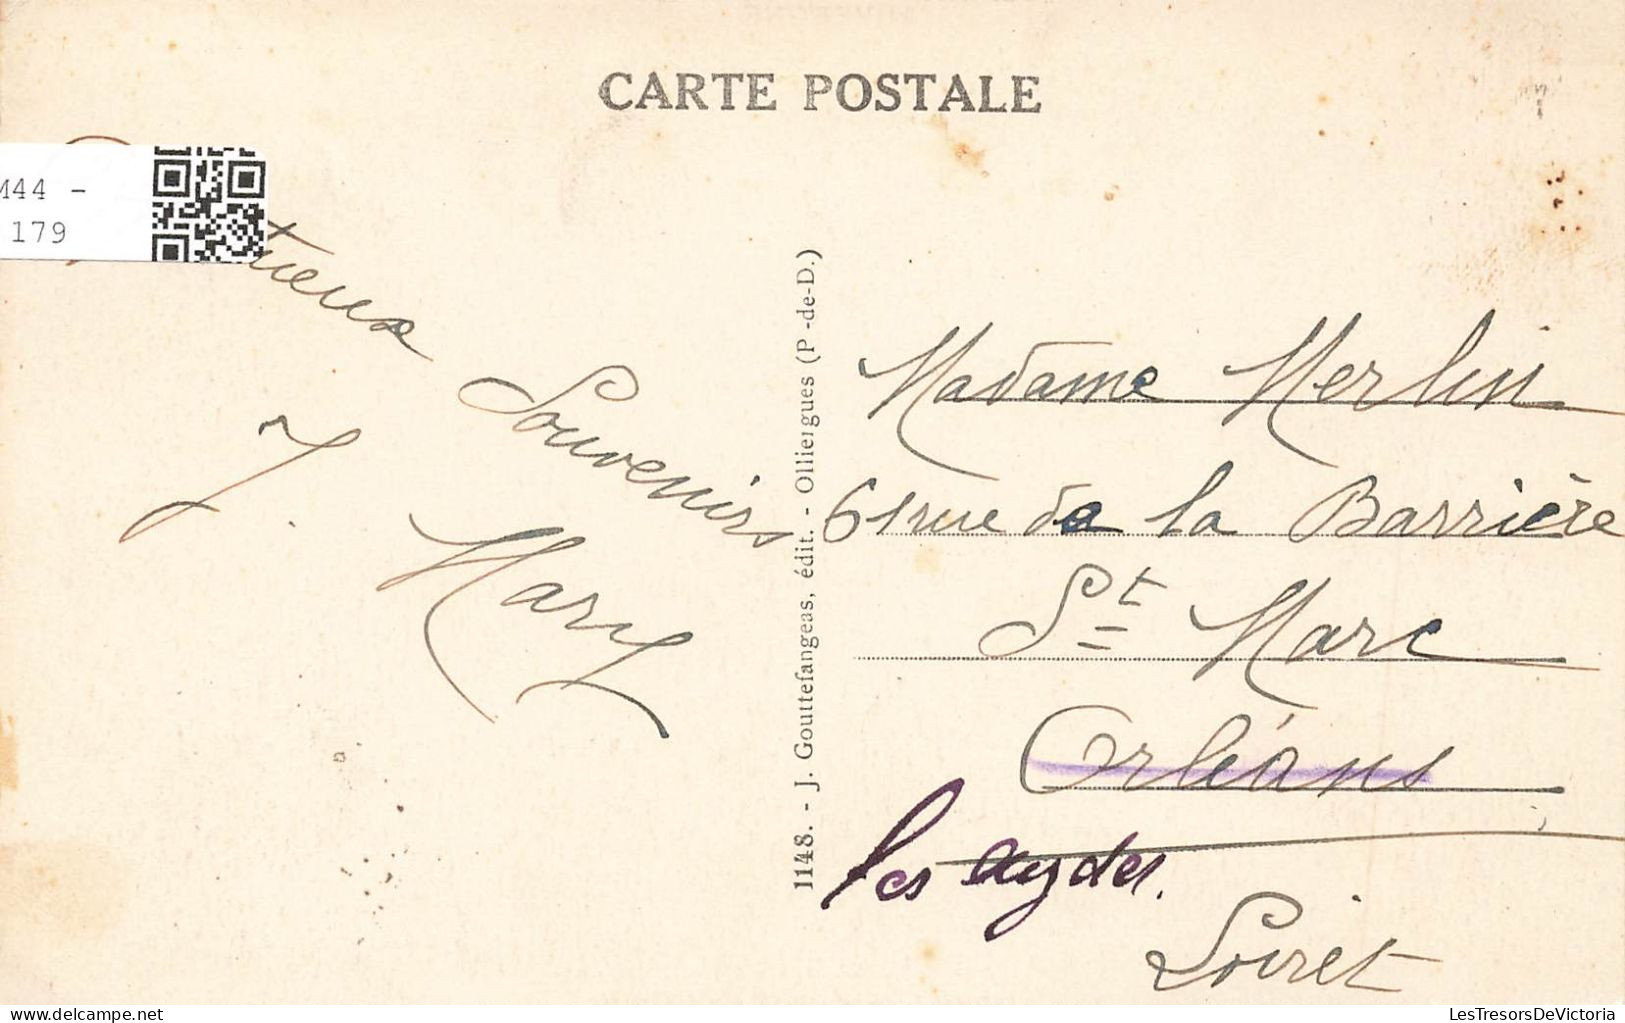 CARTE POSTALE
M44 -
179
Souvenirs
J. Mary
1148. - J. Gouttefangeas, édit. - Olliergues (P.-de-D.)
Madame Merlin
61 rue de la Barrière
St Marc
Orléans
les aydes.
Loiret
LesTresorsDeVictoria